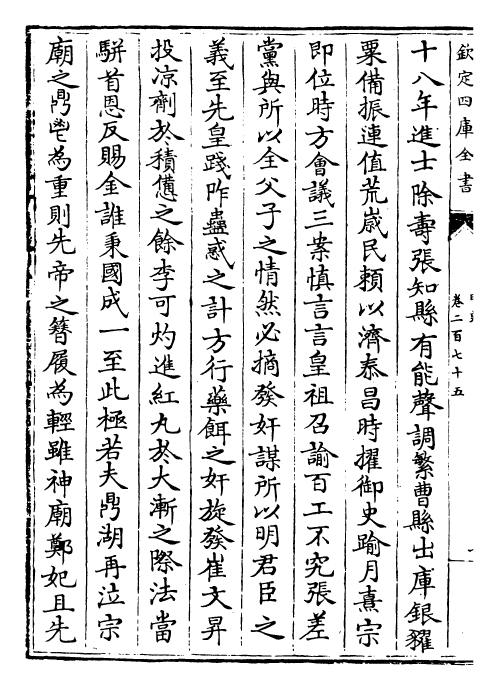 欽定四庫全書
卷二百七十五
十八年進士除壽張知縣有能聲調繁曹縣出庫銀糴
粟備振連值荒歲民賴以濟泰昌時擢御史踰月熹宗
即位時方會議三案慎言言皇祖召諭百工不究張差
黨與所以全父子之情然必摘發奸謀所以明君臣之
義至先皇踐阼蠱惑之計方行藥餌之奸旋發崔文昇
投凉劑於積憊之餘李可灼進紅丸於大漸之際法當
駢首恩反賜金誰秉國成一至此極若夫鼎湖再泣宗
廟之鼎鬯為重則先帝之簪履為輕雖神廟鄭妃且先